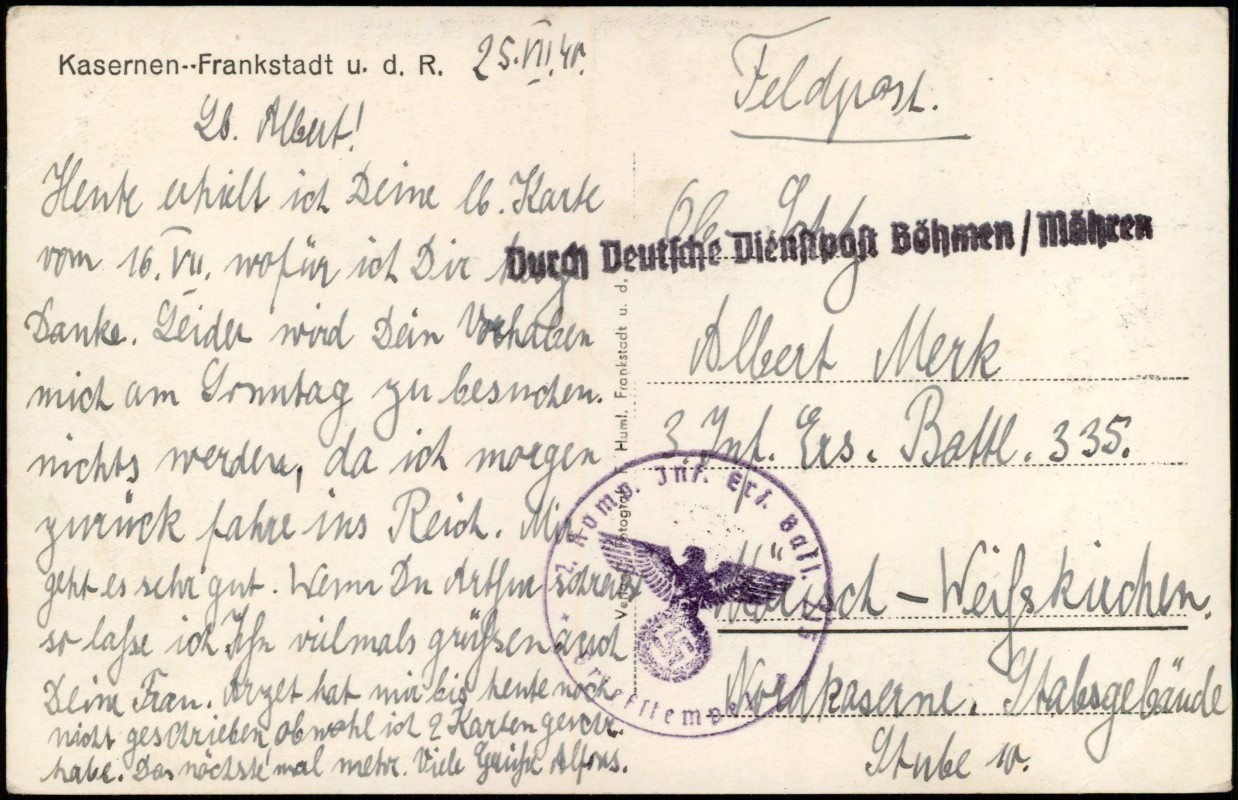 Kasernen--Frankstadt u. d. R. 25.VII.40.
Lb. Albert!
Heute erhielt ich Deine lb. Karte
vom 16. VII. wofür ich Dir
Danke. Leider wird Dein Vorhaben
mich am Sonntag zu besuchen.
nichts werden, da ich morgen
zurück fahre ins Reich. Mir
geht es sehr gut. Wenn Du Arthur schreibst
so lasse ich Ihn vielmals grüßen auch
Deine Frau. hat mir bis heute noch
nicht geschrieben obwohl ich 2 Karten geschr.
habe. Das nächste mal mehr. Viele Grüße Alfons.
Verlag Fotograf Huml. Frankstadt u. d.
Feldpost.
Durch Deutsche Dienstpost Böhmen/Mähren
Albert Merk
3. Inf. Ers. Battl. 335.
Mährisch - Weißkirchen.
Nordkaserne. Stabsgebäude
Stube 10.
2. Komp. Inf. Ers. Batl. 335
Briefstempel